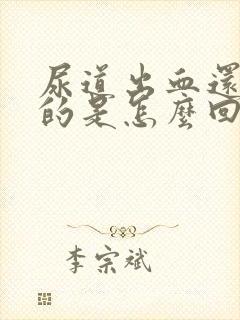 尿道出血還
的是怎麼回
李宗斌